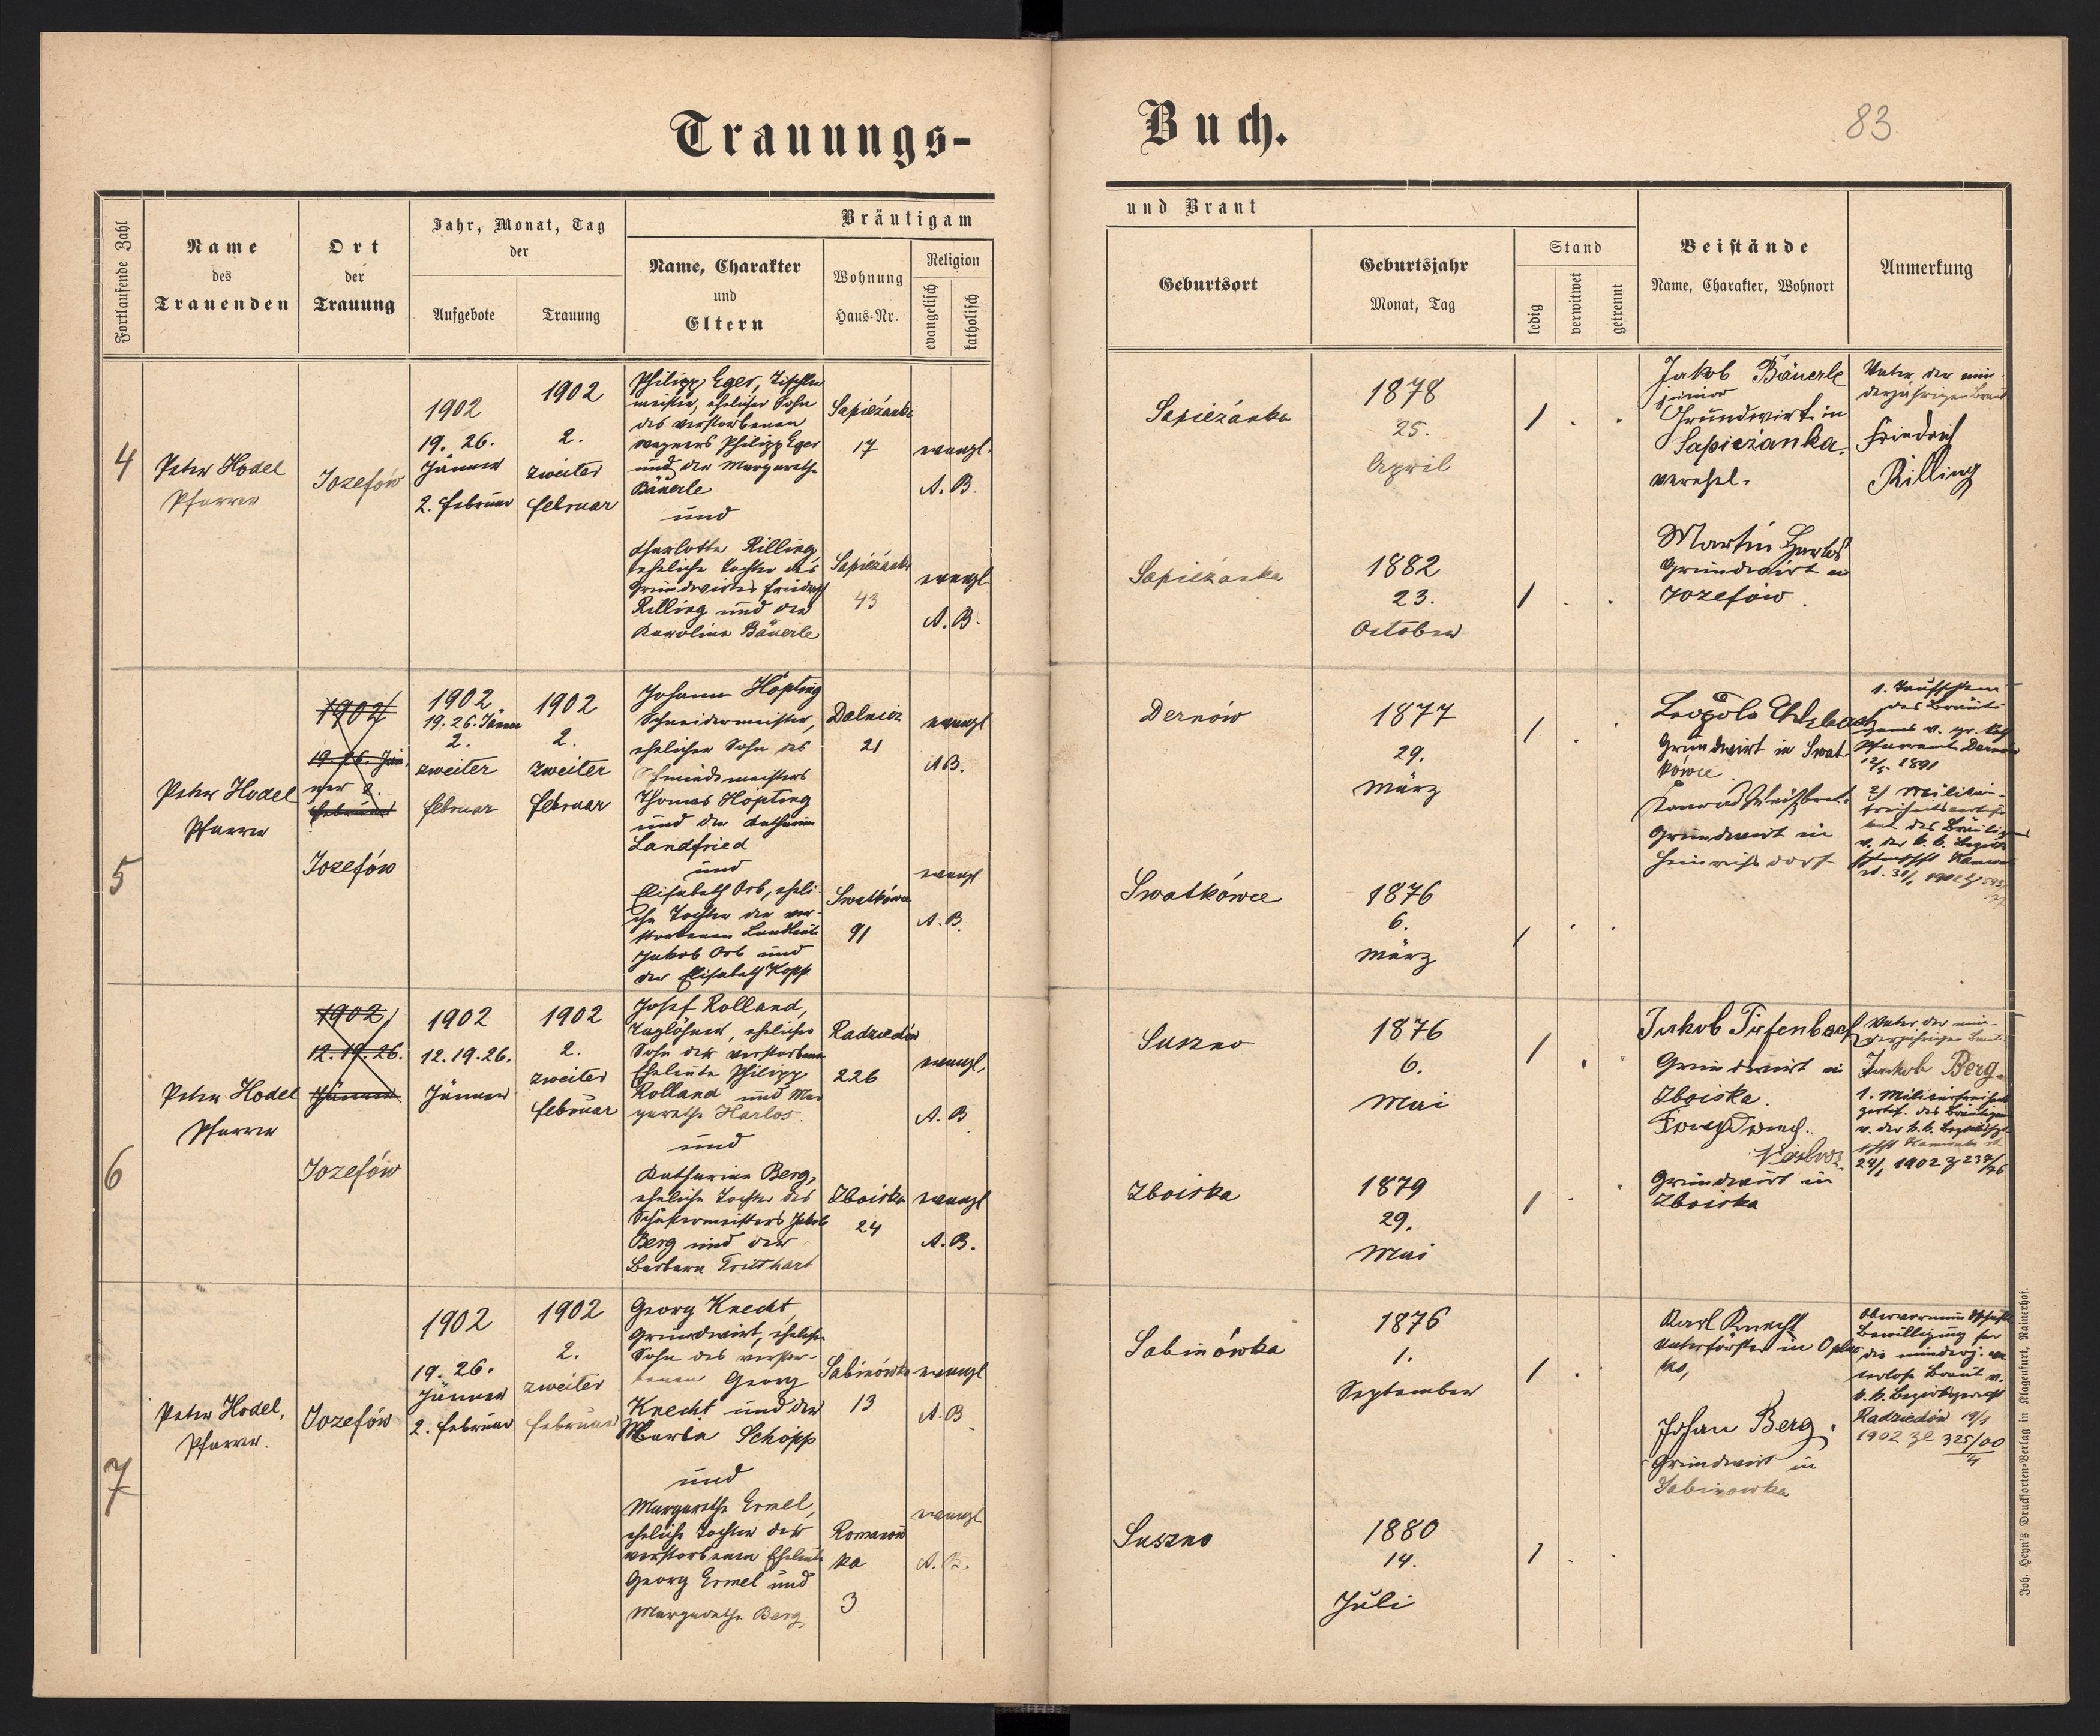 Trauungs-
Buch.
83
Fortlaufende Zahl
Name
des
Trauenden
Ort
der
Trauung
Jahr, Monat, Tag
der
Aufgebote
Trauung
Bräutigam
Name, Charakter
und
Eltern
Wohnung
Haus-Nr.
Religion
evangelisch
katholisch
und Braut
Geburtsort
Geburtsjahr
Monat, Tag
Stand
ledig
verwitwet
getrennt
Beistände
Name, Charakter, Wohnort
Anmerkung
4
Peter Hodel
Pfarrer
Jozefów
1902
19. 26.
Jänner
2. Februar
1902
2.
zweiter
Februar
Philipp Eger, Tischler
meister, ehelicher Sohn
des verstorbenen
Wagners Philipp Eger
und der Margarethe
Bäuerle
und
Charlotte Rilling,
eheliche Tochter des
Grundwirtes Friedrich
Rilling und der
Karolina Bäuerle
Sapieżanka
17
Sapieżanka
43
evangl.
A. B.
evangl
A. B.
Sapieżanka
1878
25.
April
Sapieżanka
1882
23.
October
Jakob Bäuerle
junior
Grundwirt in
Sapieżanka.
verehel.
Martin Harlos
Grundwirt in
Jozefów.
Vater der min-
derjährigen Braut
Friedrich
Rilling
5
Peter Hodel
Pfarrer
1902
19. 26. Jän
ner 2.
Februar
Jozefów
1902
19. 26. Jänner
2.
zweiter
Februar
1902
2.
zweiter
Februar
Johann Höpting
Schneidermeister,
ehelicher Sohn des
Schmiedmeisters
Thomas Höpting
und der Katharina
Landfried
und
Elisabeth Orb, eheli-
che Tochter der ver-
storbenen Landleute
Jakob Orb und
der Elisabeth Kopp
Dalnicz
21
Swatkówce
91
evangl
A B.
evangl
A. B.
Dernów
1877
29.
März
Swatkówce
1876
6.
März
Leopold
Grundwirt in Swat
kówce
Konrad
Grundwirt in
Heinrichsdorf
1. Taufschein
des Bräuti-
gams v. gr. kath
Pfarramte Dernów
12/5. 1891
2) Militär-
freiheits
kat des Bräutigams
v. der k. k. Bezirks
6
Peter Hodel
Pfarrer
1902
12. 19. 26.
Jänner
Jozefów
1902
12. 19. 26.
Jänner
1902
2.
zweiter
Februar
Josef Rolland,
Taglöhner, ehelicher
Sohn der verstorbenen
Eheleute Philipp
Rolland und Mar
garethe Harlos.
und
Katharina Berg,
eheliche Tochter des
Schustermeisters Jakob
Berg und der
Barbara Tritthart
Radziechów
226
Zboiska
24
evangl.
A. B
evangl
A. B.
Suszno
1876
6.
Mai
Zboiska
1879
29.
Mai
Jakob Tiefenbach
Grundwirt in
Zboiska.
Grundwirt in
Zboiska
Vater der min-
derjährigen Braut
Jakob Berg.
1. Militärfreiheits
zertif. des Bräutigams
v. der k. k. Bezirkshpt
24/1 1902 Z 237/76
7
Peter Hodel,
Pfarrer.
Jozefów
1902
19. 26.
Jänner
2. Februar
1902
2.
zweiter
Februar
Georg Knecht,
Grundwirt, ehelicher
Sohn des verstor-
benen Georg
Knecht und der
Maria Schopp
und
Margarethe Ermel,
eheliche Tochter der
verstorbenen Eheleute
Georg Ermel und
Margarethe Berg
Sabinówka
13
Romanów
ka
3
evangl
A. B
evangl
A. B.
Sabinówka
1876
1.
September
Suszno
1880
14.
Juli
Karl Knecht
Unterförster in Opłuc
ko,
Johan Berg.
Grundwirt in
Sabinowka
Obervormundschaftl
Bewilligung für
die minderj. va
terlose Braut v.
k. k. Bezirksgericht
Radziechów 19/1
1902 Zl 325/00
4
Joh. Heyn's Drucksorten-Verlag in Klagenfurt, Rainerhof.